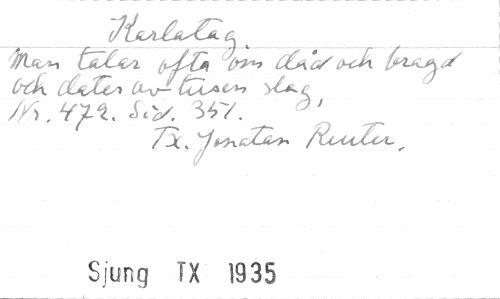 Karlatag
Man talar ofta om dåd och bragd
och dater av tusen slag,
Nr. 472. Sid. 351.
Tx. Jonatan Reuter.
Sjung TX 1935